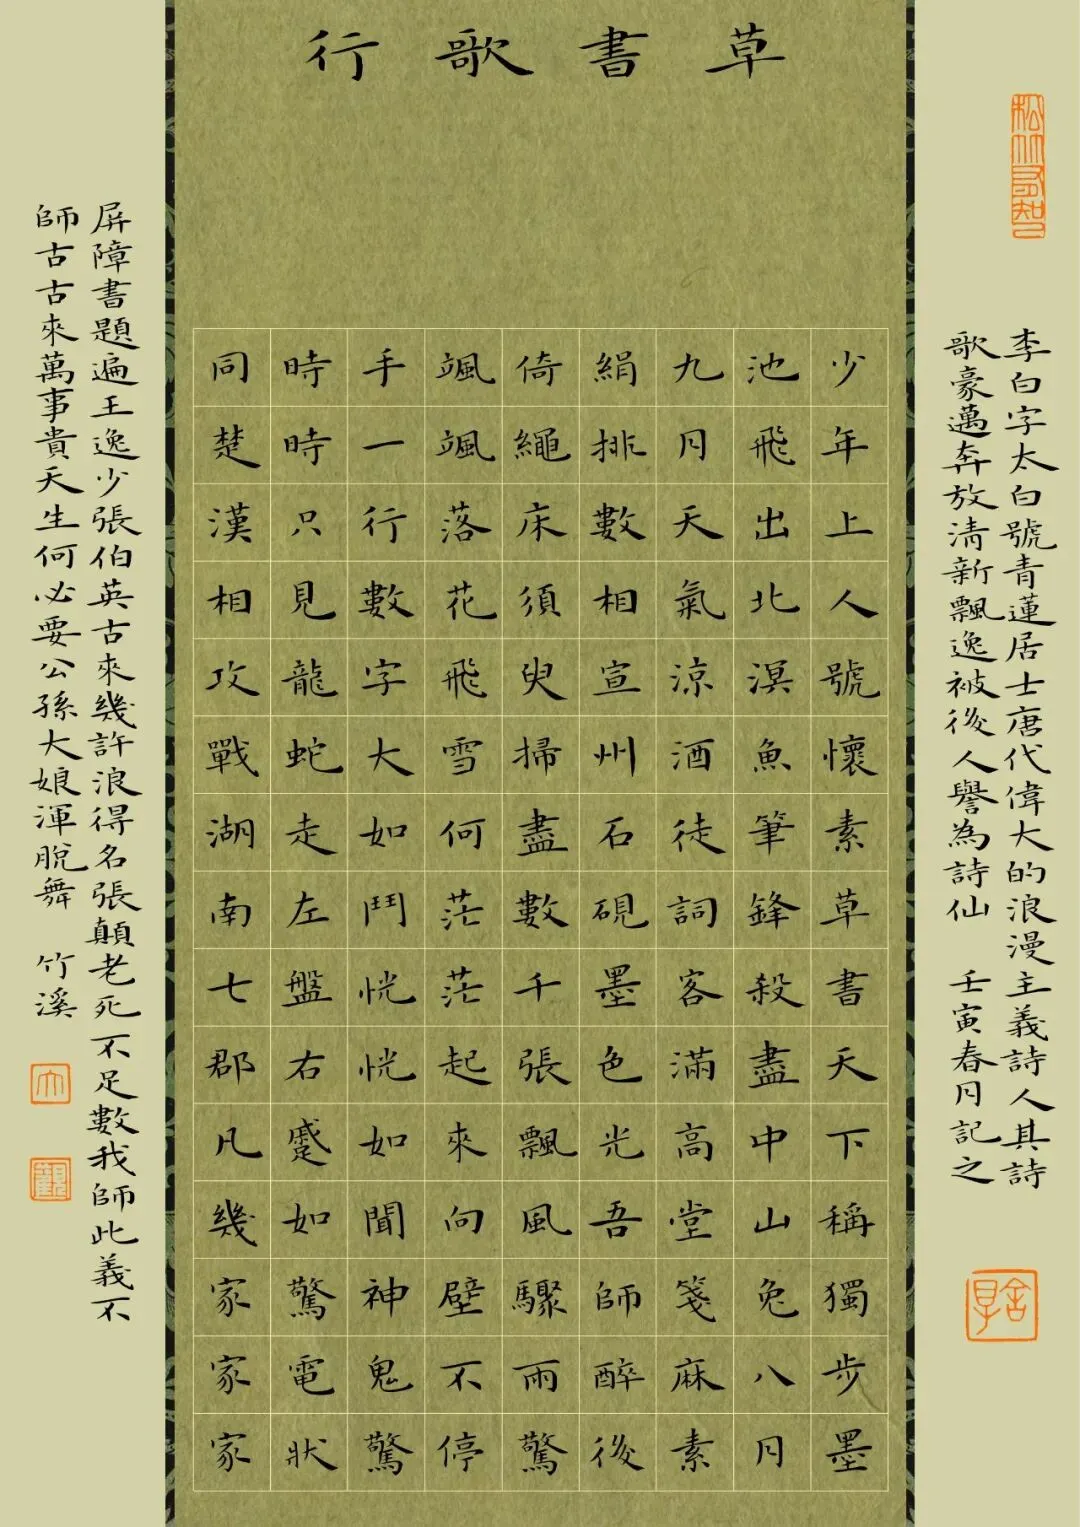 草書歌行
少年上人號懷素草書天下稱獨步墨
池飛出北溟魚筆鋒殺盡中山兔八月
九月天氣涼酒徒詞客滿高堂箋麻素
絹排數相宣州石硯墨色光吾師醉後
倚繩床須臾掃盡數千張飄風驟雨驚
颯颯落花飛雪何茫茫起來向壁不停
手一行數字大如鬥恍恍如聞神鬼驚
時時只見龍蛇走左盤右蹙如驚電狀
同楚漢相攻戰湖南七郡凡幾家家家
屏障書題遍王逸少張伯英古來幾許浪得名張顛老死不足數我師此義不
師古古來萬事貴天生何必要公孫大娘渾脫舞 竹溪
李白字太白號青蓮居士唐代偉大的浪漫主義詩人其詩
歌豪邁奔放清新飄逸被後人譽為詩仙 壬寅春月記之